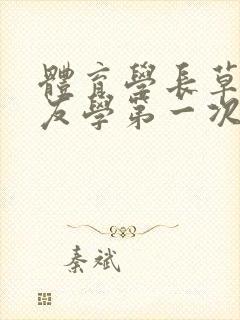 體育學長草
友學第一次
秦斌